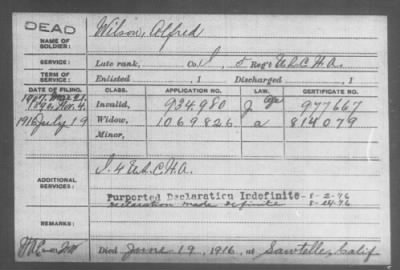 DEAD
NAME OF SOLDIER: Wilson, Alfred
SERVICE: Late rank, Co. I, 5 Reg't U.S.C.H.A.
TERM OF SERVICE: Enlisted , 1 Discharged , 1
DATE OF FILING. CLASS. APPLICATION NO. LAW. CERTIFICATE NO.
Invalid, 934,980 977667
1916 July 19 Widow, 1069826 a 814079
Minor,
ADDITIONAL SERVICES: I. 4 U.S.C.H.A.
Purported Declaration Indefinite- 8-2-'16
declaration made definite 8-24-'16
REMARKS:
Died June 19, 1916, at Sawtelle, Calif